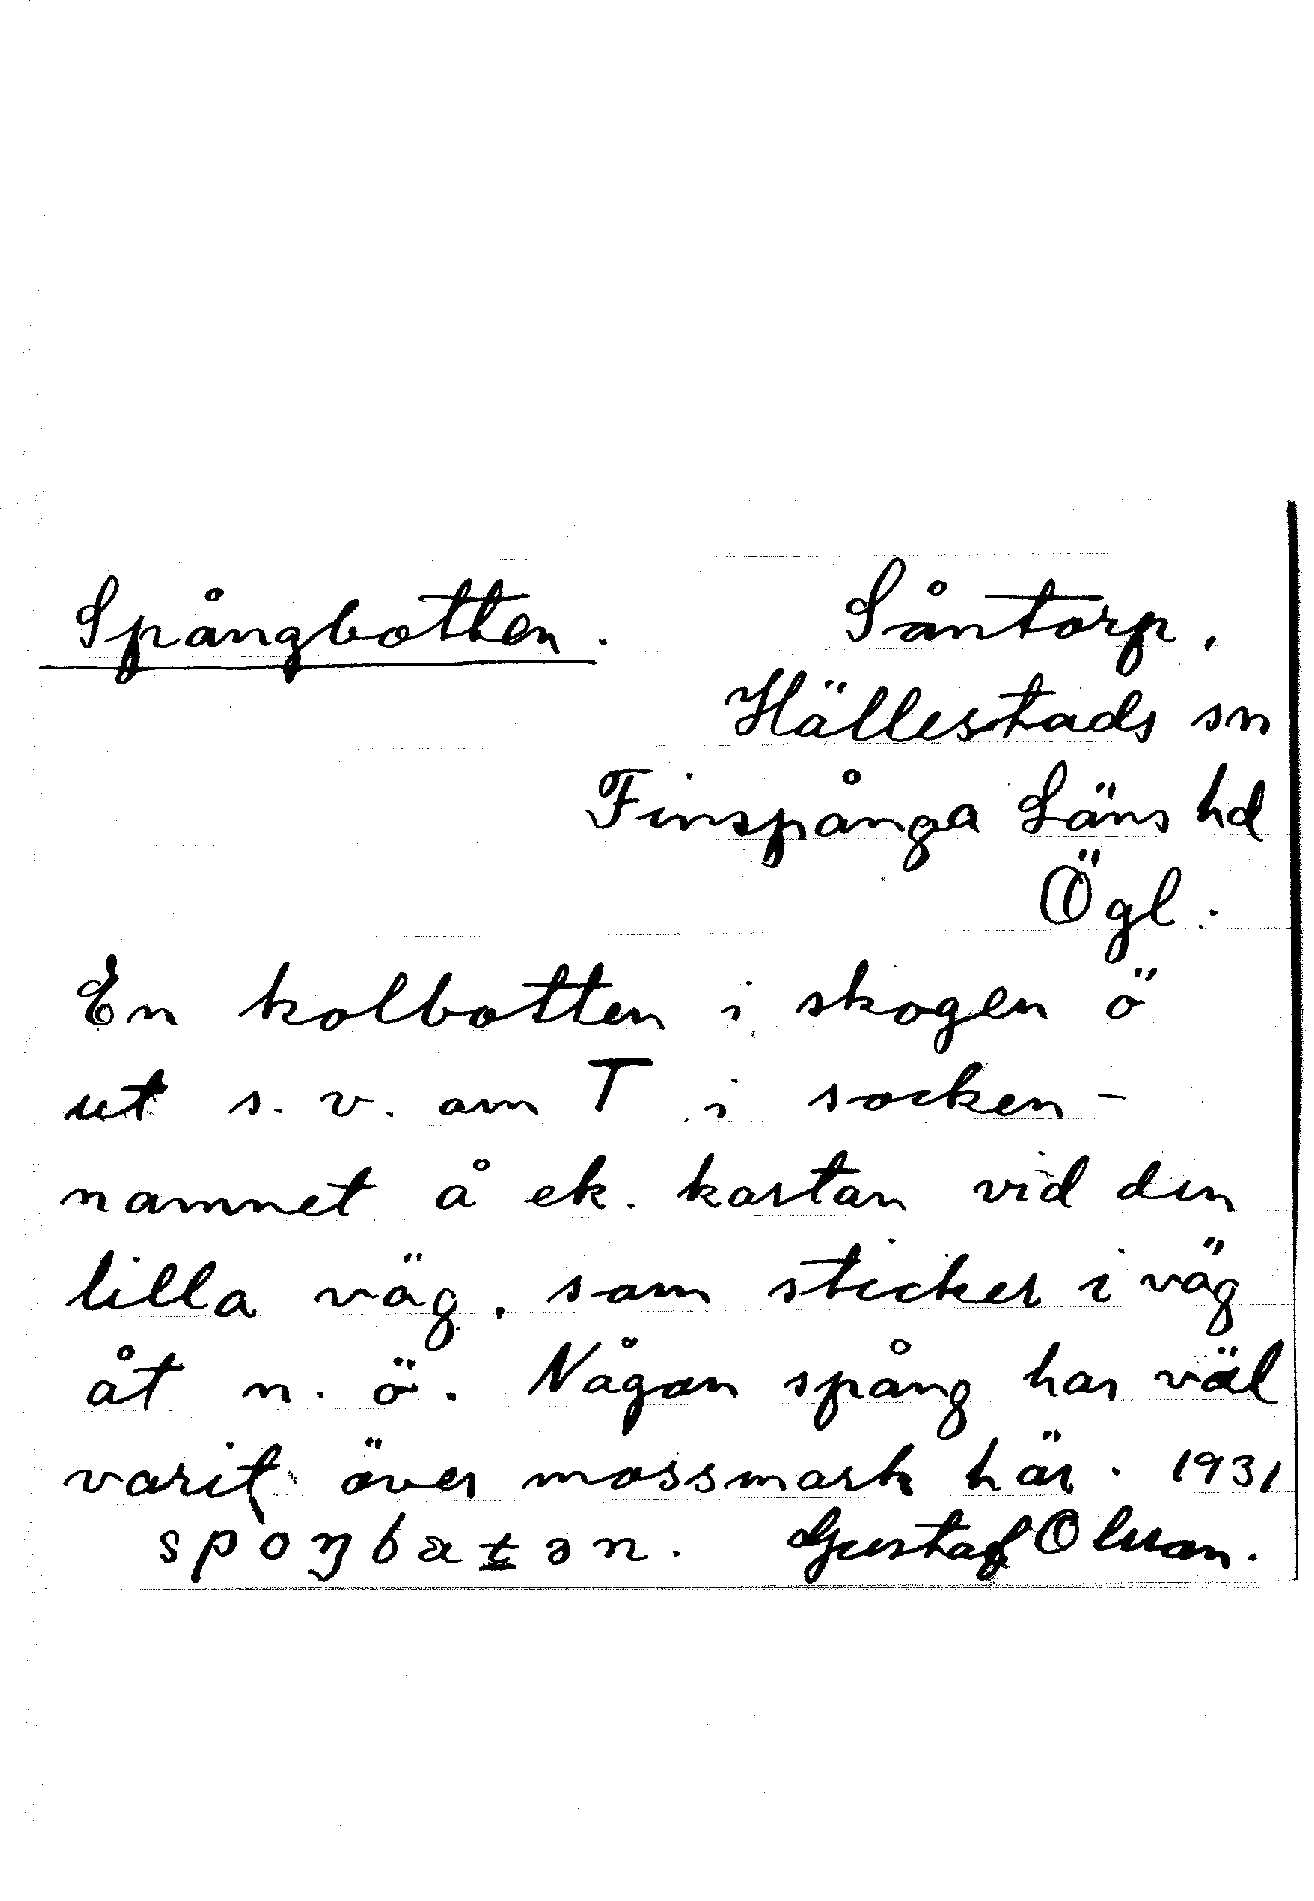 Spångbotten. Såntorp,
Hällestads sn
Finspånga Läns hd
Ögl.
En kolbotten i skogen ö
ut s. v. om T i socken-
namnet å ek. kartan vid den
lilla väg, som sticker i väg
åt n. ö. Någon spång har väl
varit över mossmark här. 1931
Gustaf Olsson.